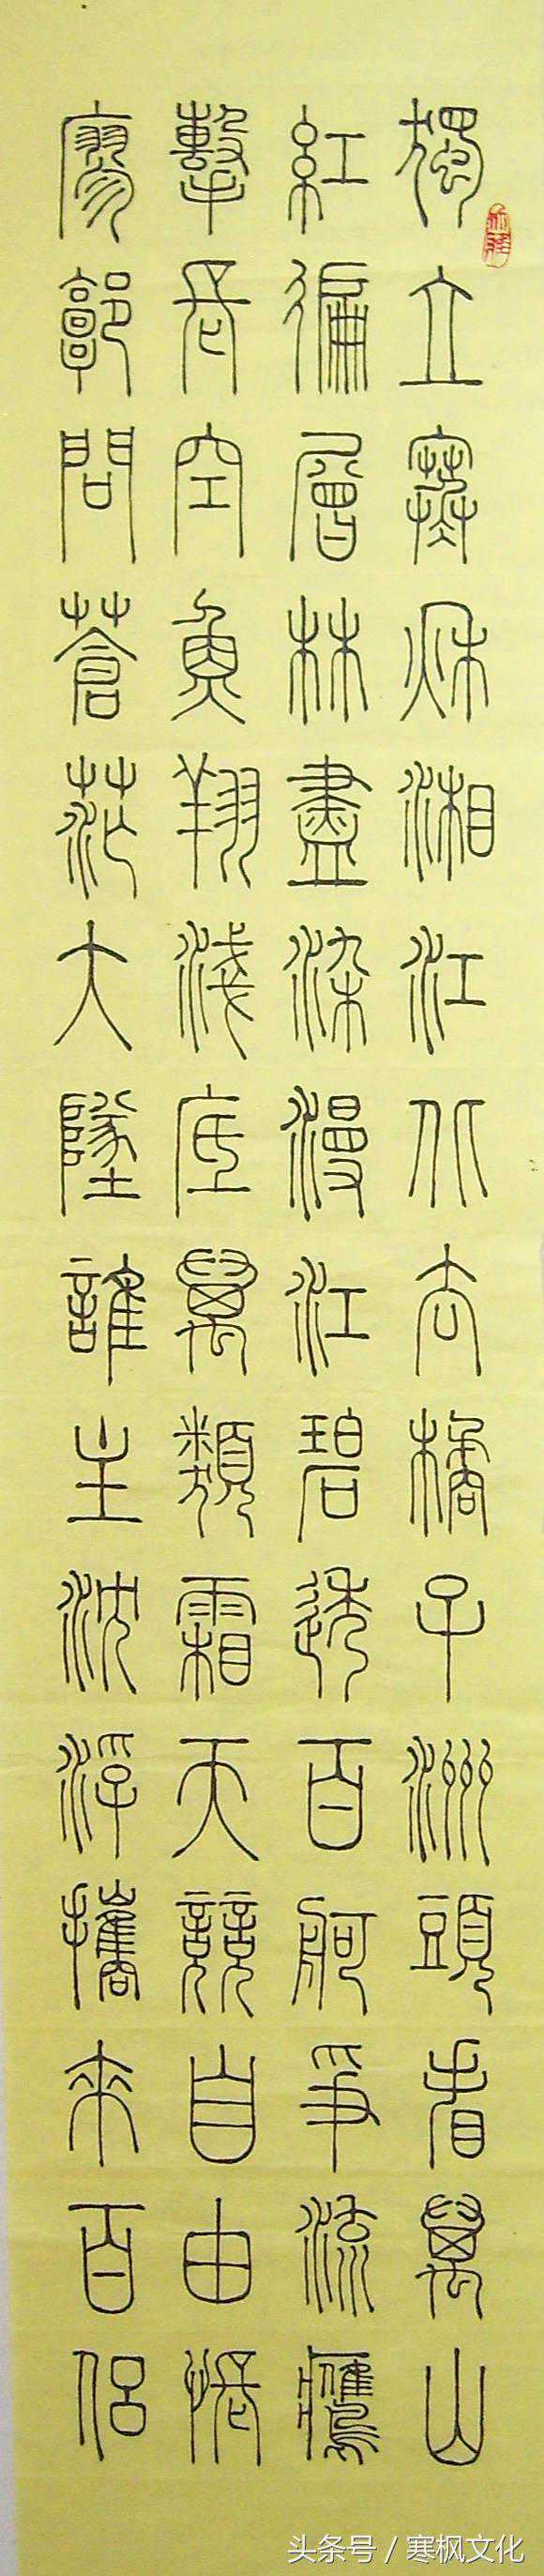 獨立寒秋湘江北去橘子洲頭看萬山
紅徧層林盡染漫江碧透百舸爭流鷹
擊長空魚翔淺底萬類霜天競自由悵
廖郭問蒼茫大地誰主沈浮攜來百侶
头条号 / 寒枫文化